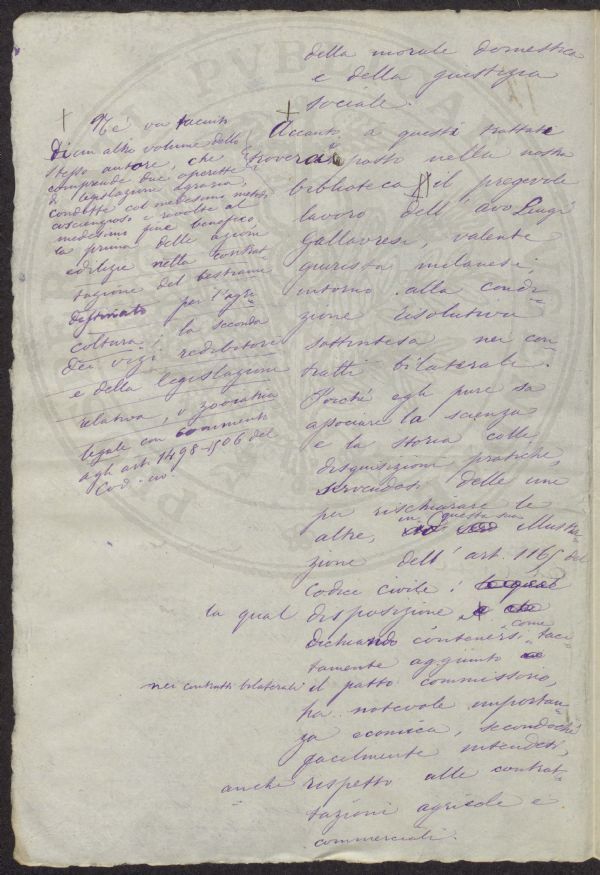 della morale domestica
e della giustizia
sociale.
+ Accanto a questi trattati
troverà posto nella nostra
biblioteca il pregevole
lavoro dell' avv Luigi
Gallavresi, valente
giurista milanese,
intorno alla condi-
zione risolutiva
sottintesa nei con
tratti bilaterali.
Poiché egli pure sa
associare la scienza
e la storia colle
disquisizioni pratiche,
servendosi delle une
per rischiarare le
altre, in questa sua illustra-
zione dell' art. 1165 del
Codice civile;
la qual disposizione
dichiarando contenersi come taci-
tamente aggiunto
nei contratti bilaterali il patto commissorio,
ha notevole importan-
za economica, secondoché
facilmente intendesi,
anche rispetto alle contrat-
tazioni agricole e
commerciali.
+ Né va taciuto
di un altro volume dello
stesso autore, che
comprende due operette
di legislazione agraria,
condotte col medesimo metodo
coscienzioso e rivolte al
medesimo fine benefico,
la prima delle azioni
edilizie nella contrat
tazione del bestiame
destinato per l'agri
coltura; la seconda
dei vizi redibitori
e della legislazione
relativa, o zooiatria
legale con commento
agli arti 1498-1506 del
Cod. civ.